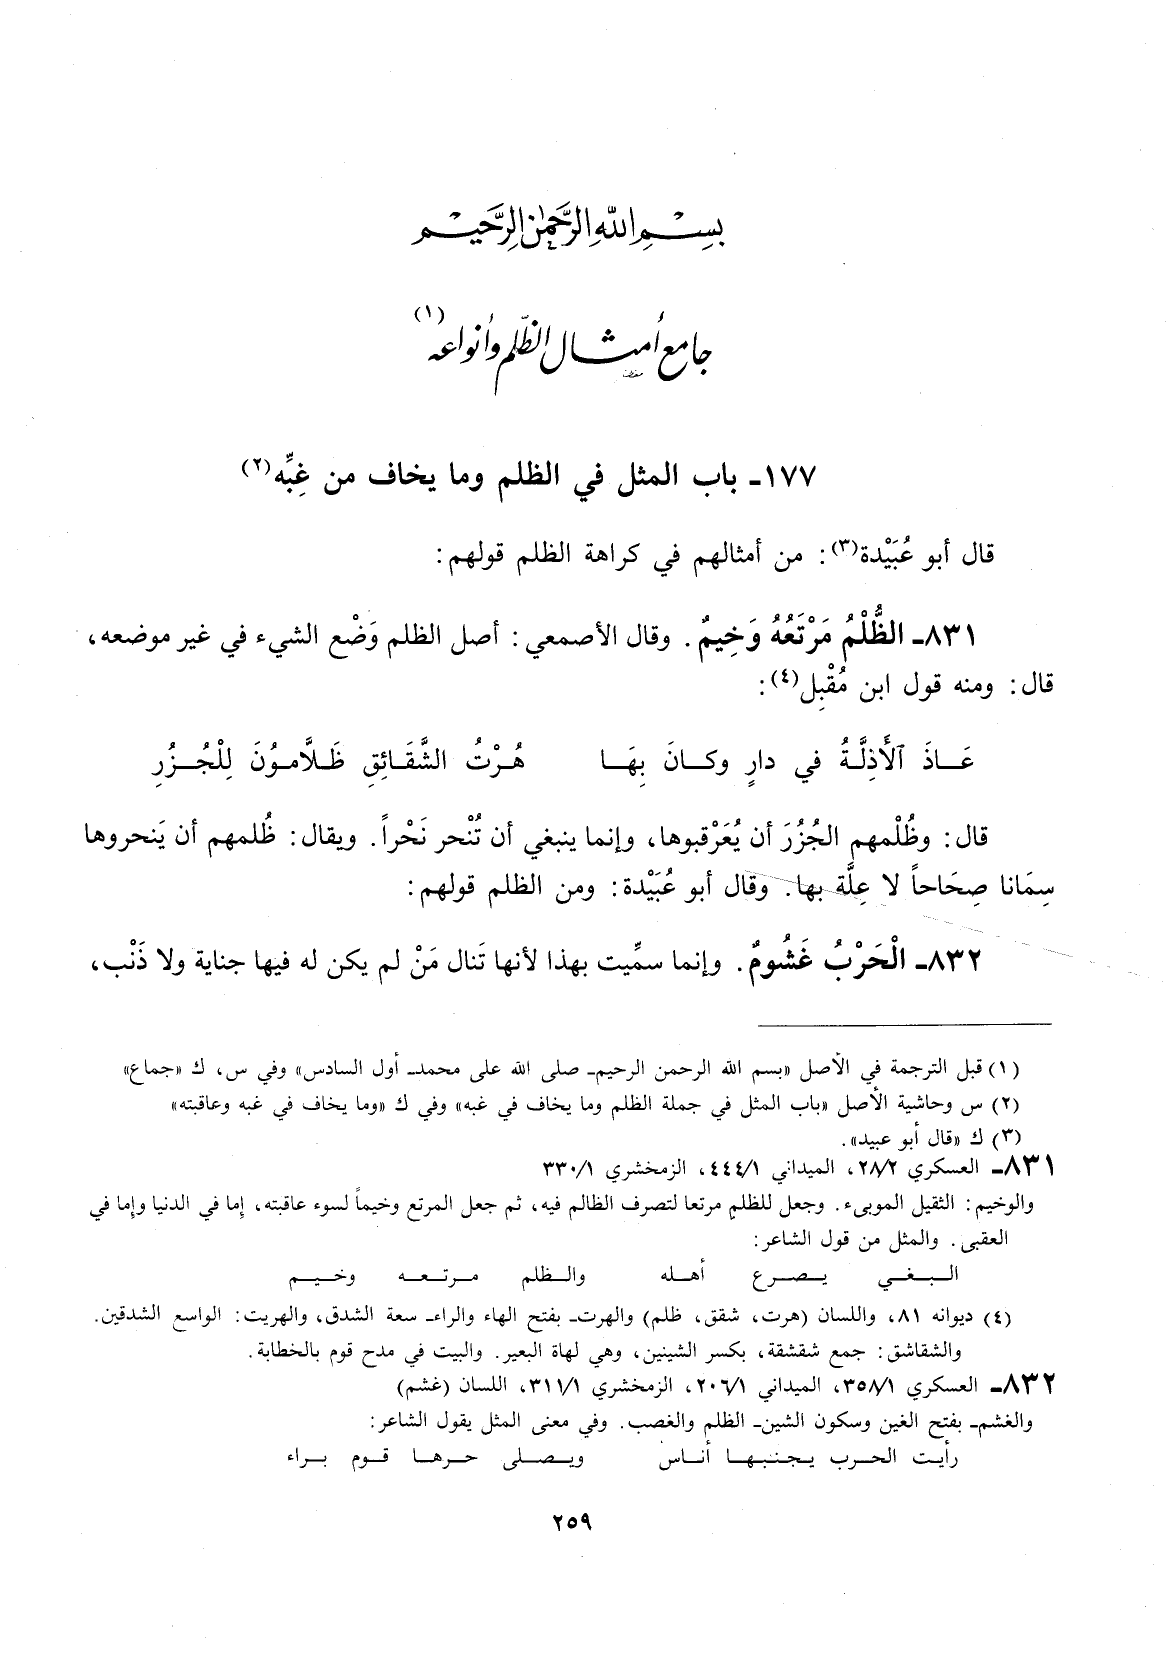 بسم الله الرحمن الرحيم
جامع أمثال الظلم وأنواعه(١)
١٧٧ـ باب المثل في الظلم وما يخاف من غِبِّه(٢)
قال أبو عُبَيْدة(٣): من أمثالهم في كراهة الظلم قولهم:
٨٣١ـ الظُّلْمُ مَرْتَعُهُ وَخِيمٌ. وقال الأصمعي: أصل الظلم وَضْع الشيء في غير موضعه،
قال: ومنه قول ابن مُقْبِل(٤):
عَـاذَ ٱلْأَذِلَّـةُ في دارٍ وكـانَ بِهَـا هُـرْتُ الشَّقَـائِقِ ظَـلَّامـوُنَ لِلْجُـزُرِ
قال: وظُلْمهم الجُزُرَ أن يُعَرْقبوها، وإنما ينبغي أن تُنْحر نَحْراً. ويقال: ظُلمهم أن يَنحروها
سِمَانا صِحَاحاً لا عِلَّة بها. وقال أبو عُبَيْدة: ومن الظلم قولهم:
٨٣٢ـ الْحَرْبُ غَشُومٌ. وإنما سمِّيت بهذا لأنها تَنال مَنْ لم يكن له فيها جناية ولا ذَنْب،
(١) قبل الترجمة في الأصل «بسم الله الرحمن الرحيم ـ صلى الله على محمد ـ أول السادس» وفي س، ك «جماع»
(٢) س وحاشية الأصل «باب المثل في جملة الظلم وما يخاف في غبه» وفي ك «وما يخاف في غبه وعاقبته»
(٣) ك «قال أبو عبيد».
٨٣١ـ العسكري ٢٨/٢، الميداني ٤٤٤/١، الزمخشري ٣٣٠/١
والوخيم: الثقيل الموبىء. وجعل للظلم مرتعا لتصرف الظالم فيه، ثم جعل المرتع وخيماً لسوء عاقبته، إما في الدنيا وإما في
العقبى. والمثل من قول الشاعر:
البـغـي يـصـرع أهـله والـظلم مـرتـعـه وخـيـم
(٤) ديوانه ٨١، واللسان (هرت، شقق، ظلم) والهرت ـ بفتح الهاء والراء ـ سعة الشدق، والهريت: الواسع الشدقين.
والشقاشق: جمع شقشقة، بكسر الشينين، وهي لهاة البعير. والبيت في مدح قوم بالخطابة.
٨٣٢ـ العسكري ٣٥٨/١، الميداني ٢٠٦/١، الزمخشري ٣١١/١، اللسان (غشم)
والغشم ـ بفتح الغين وسكون الشين ـ الظلم والغصب. وفي معنى المثل يقول الشاعر:
رأيـت الحـرب يـجـنـبـهـا أنـاس ويـصـلى حـرهـا قـوم بـراء
٢٥٩